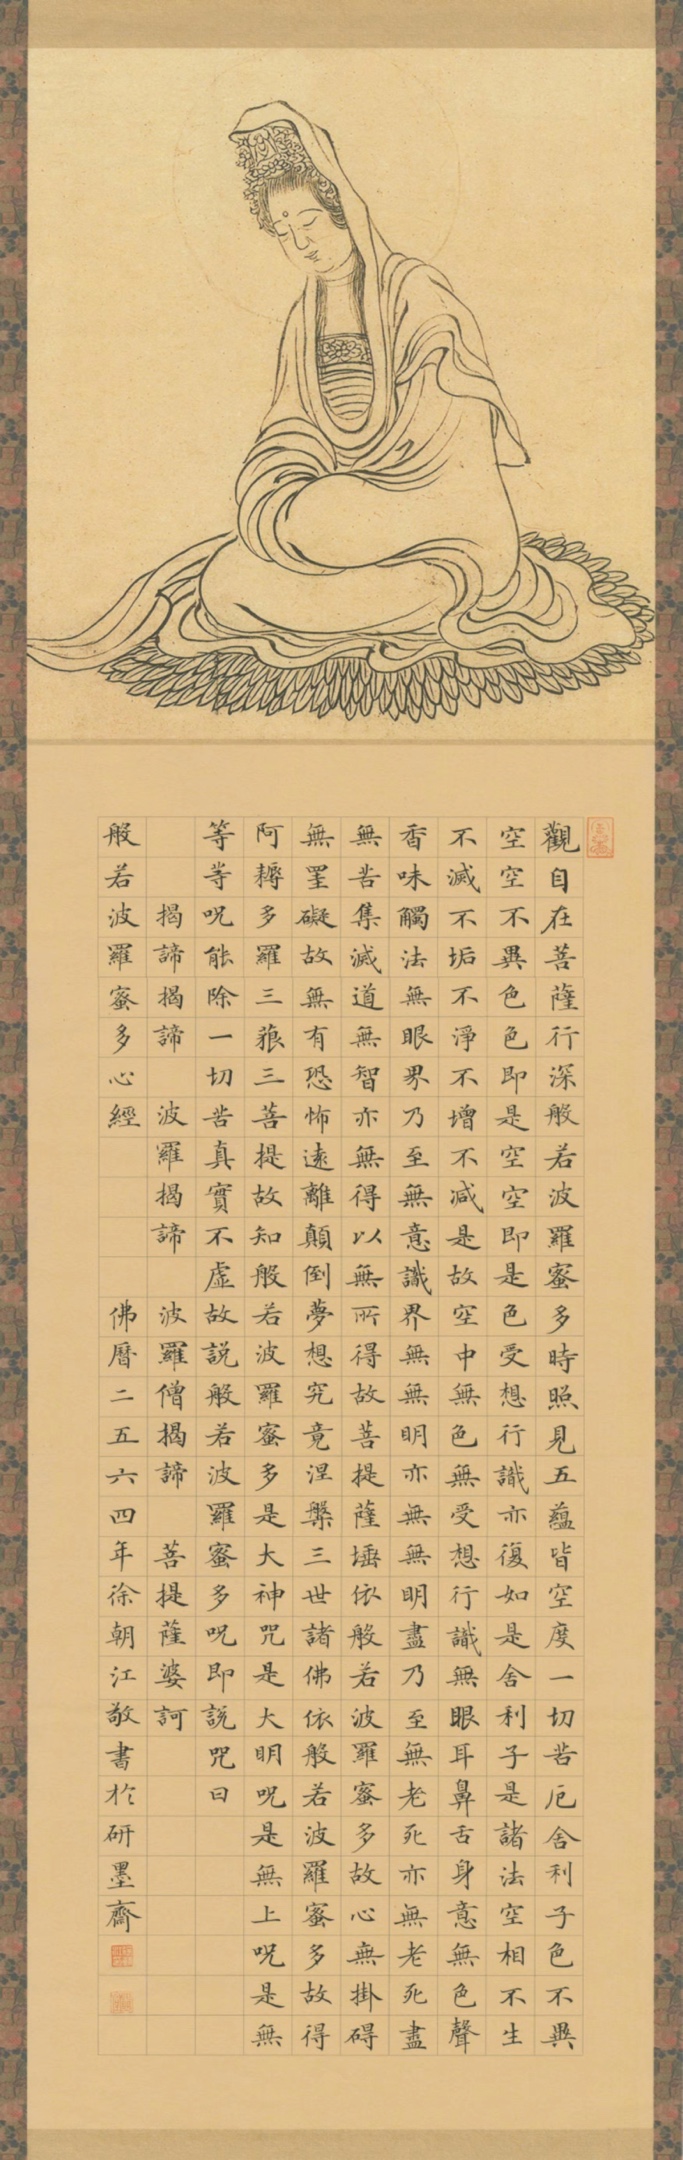 觀自在菩薩行深般若波羅蜜多時照見五蘊皆空度一切苦厄舍利子色不異
空空不異色色即是空空即是色受想行識亦復如是舍利子是諸法空相不生
不滅不垢不淨不增不減是故空中無色無受想行識無眼耳鼻舌身意無色聲
香味觸法無眼界乃至無意識界無無明亦無無明盡乃至無老死亦無老死盡
無苦集滅道無智亦無得以無所得故菩提薩埵依般若波羅蜜多故心無掛碍
無罣礙故無有恐怖遠離顛倒夢想究竟涅槃三世諸佛依般若波羅蜜多故得
阿耨多羅三藐三菩提故知般若波羅蜜多是大神咒是大明呪是無上呪是無
等等呪能除一切苦真實不虛故說般若波羅蜜多呪即說咒曰
揭諦揭諦 波羅揭諦 波羅僧揭諦 菩提薩婆訶
般若波羅蜜多心經 佛曆二五六四年徐朝江敬書於研墨齋